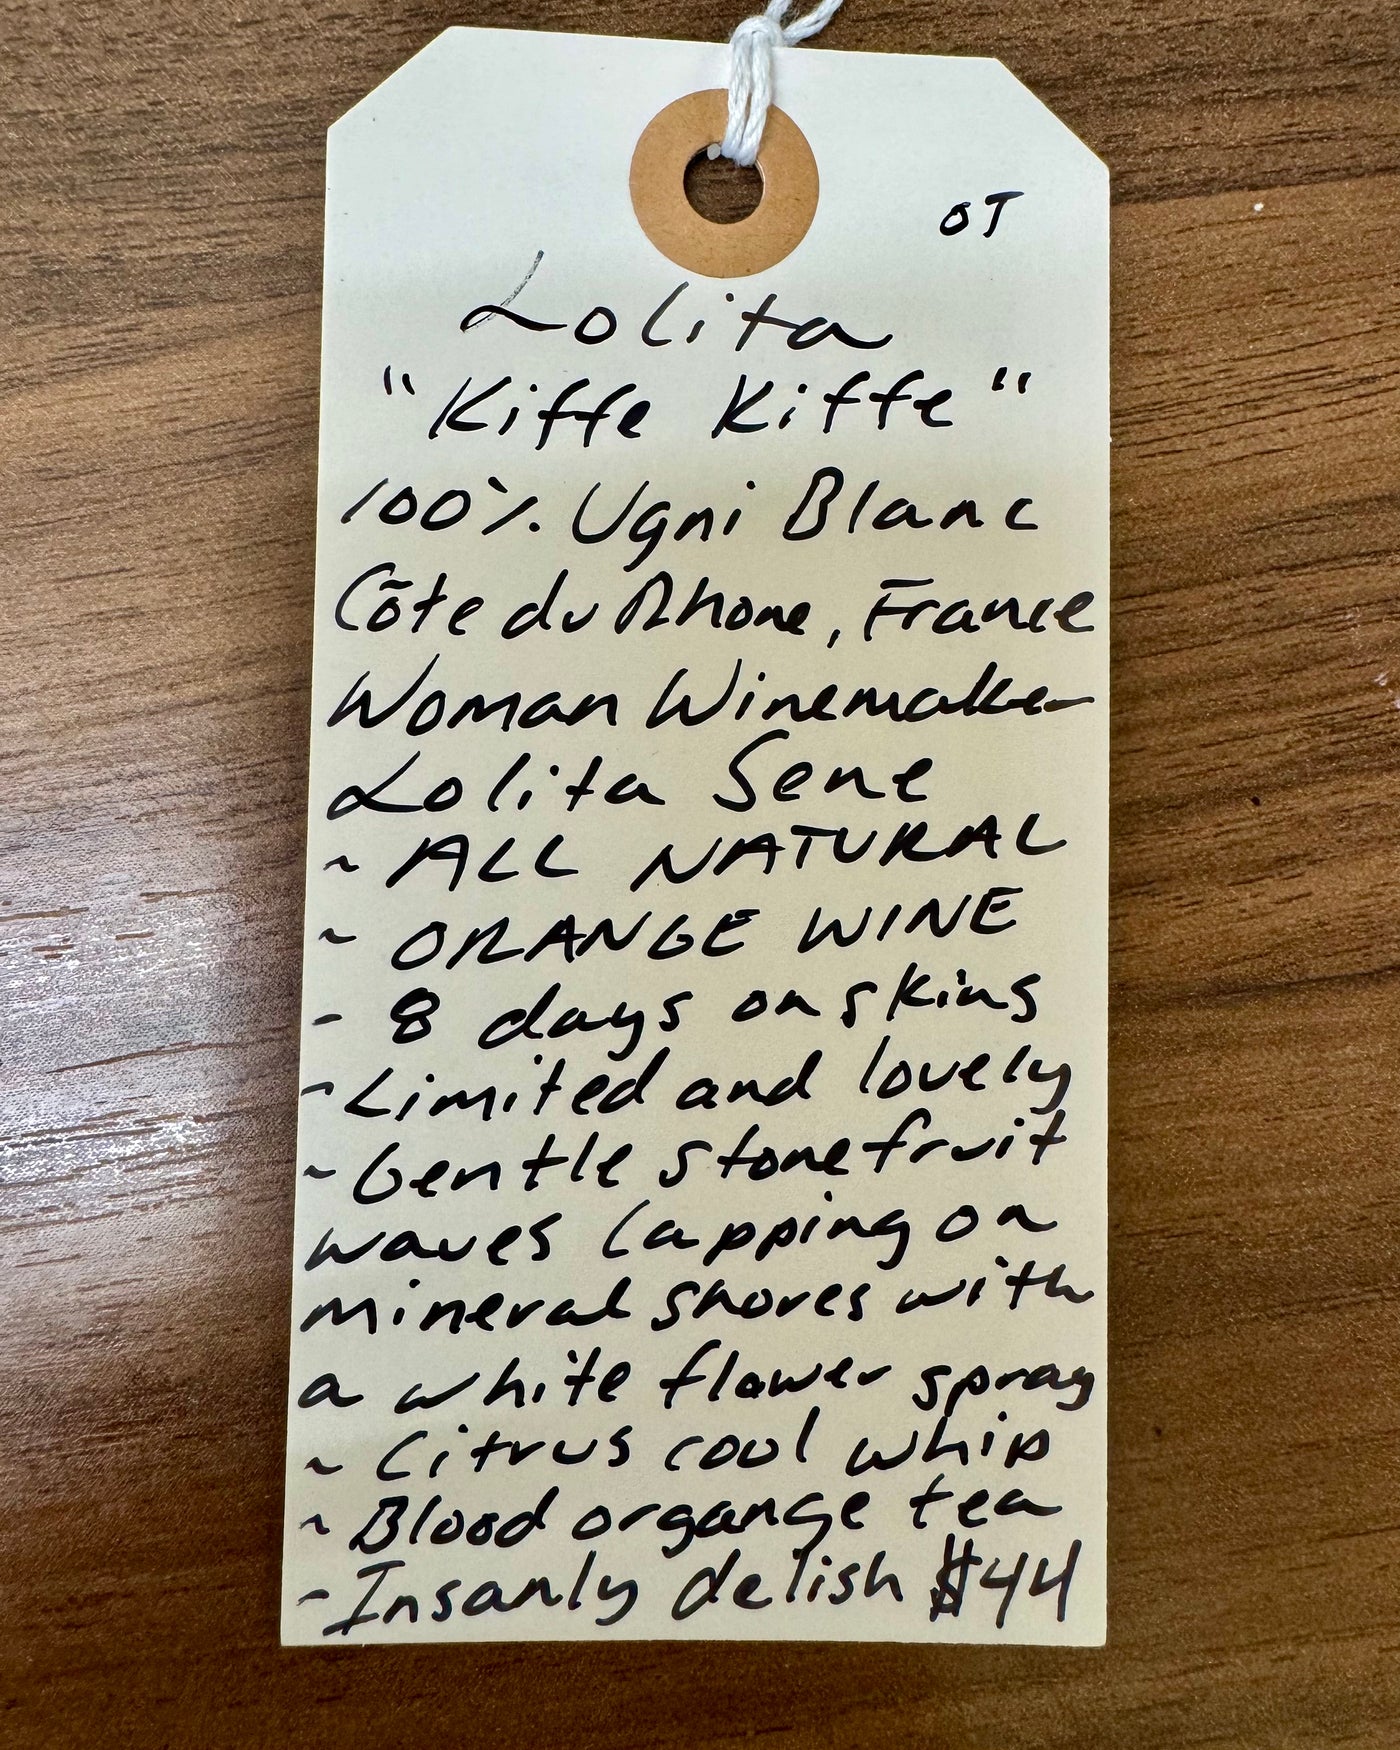 OT
Lolita
"Kiffe Kiffe"
100% Ugni Blanc
Côte du Rhone, France
Woman Winemaker
Lolita Sene
~ ALL NATURAL
~ ORANGE WINE
- 8 days on skins
- Limited and lovely
~ Gentle stonefruit
waves lapping on
mineral shores with
a white flower spray
~ Citrus cool whip
~ Blood organge tea
- Insanly delish $44